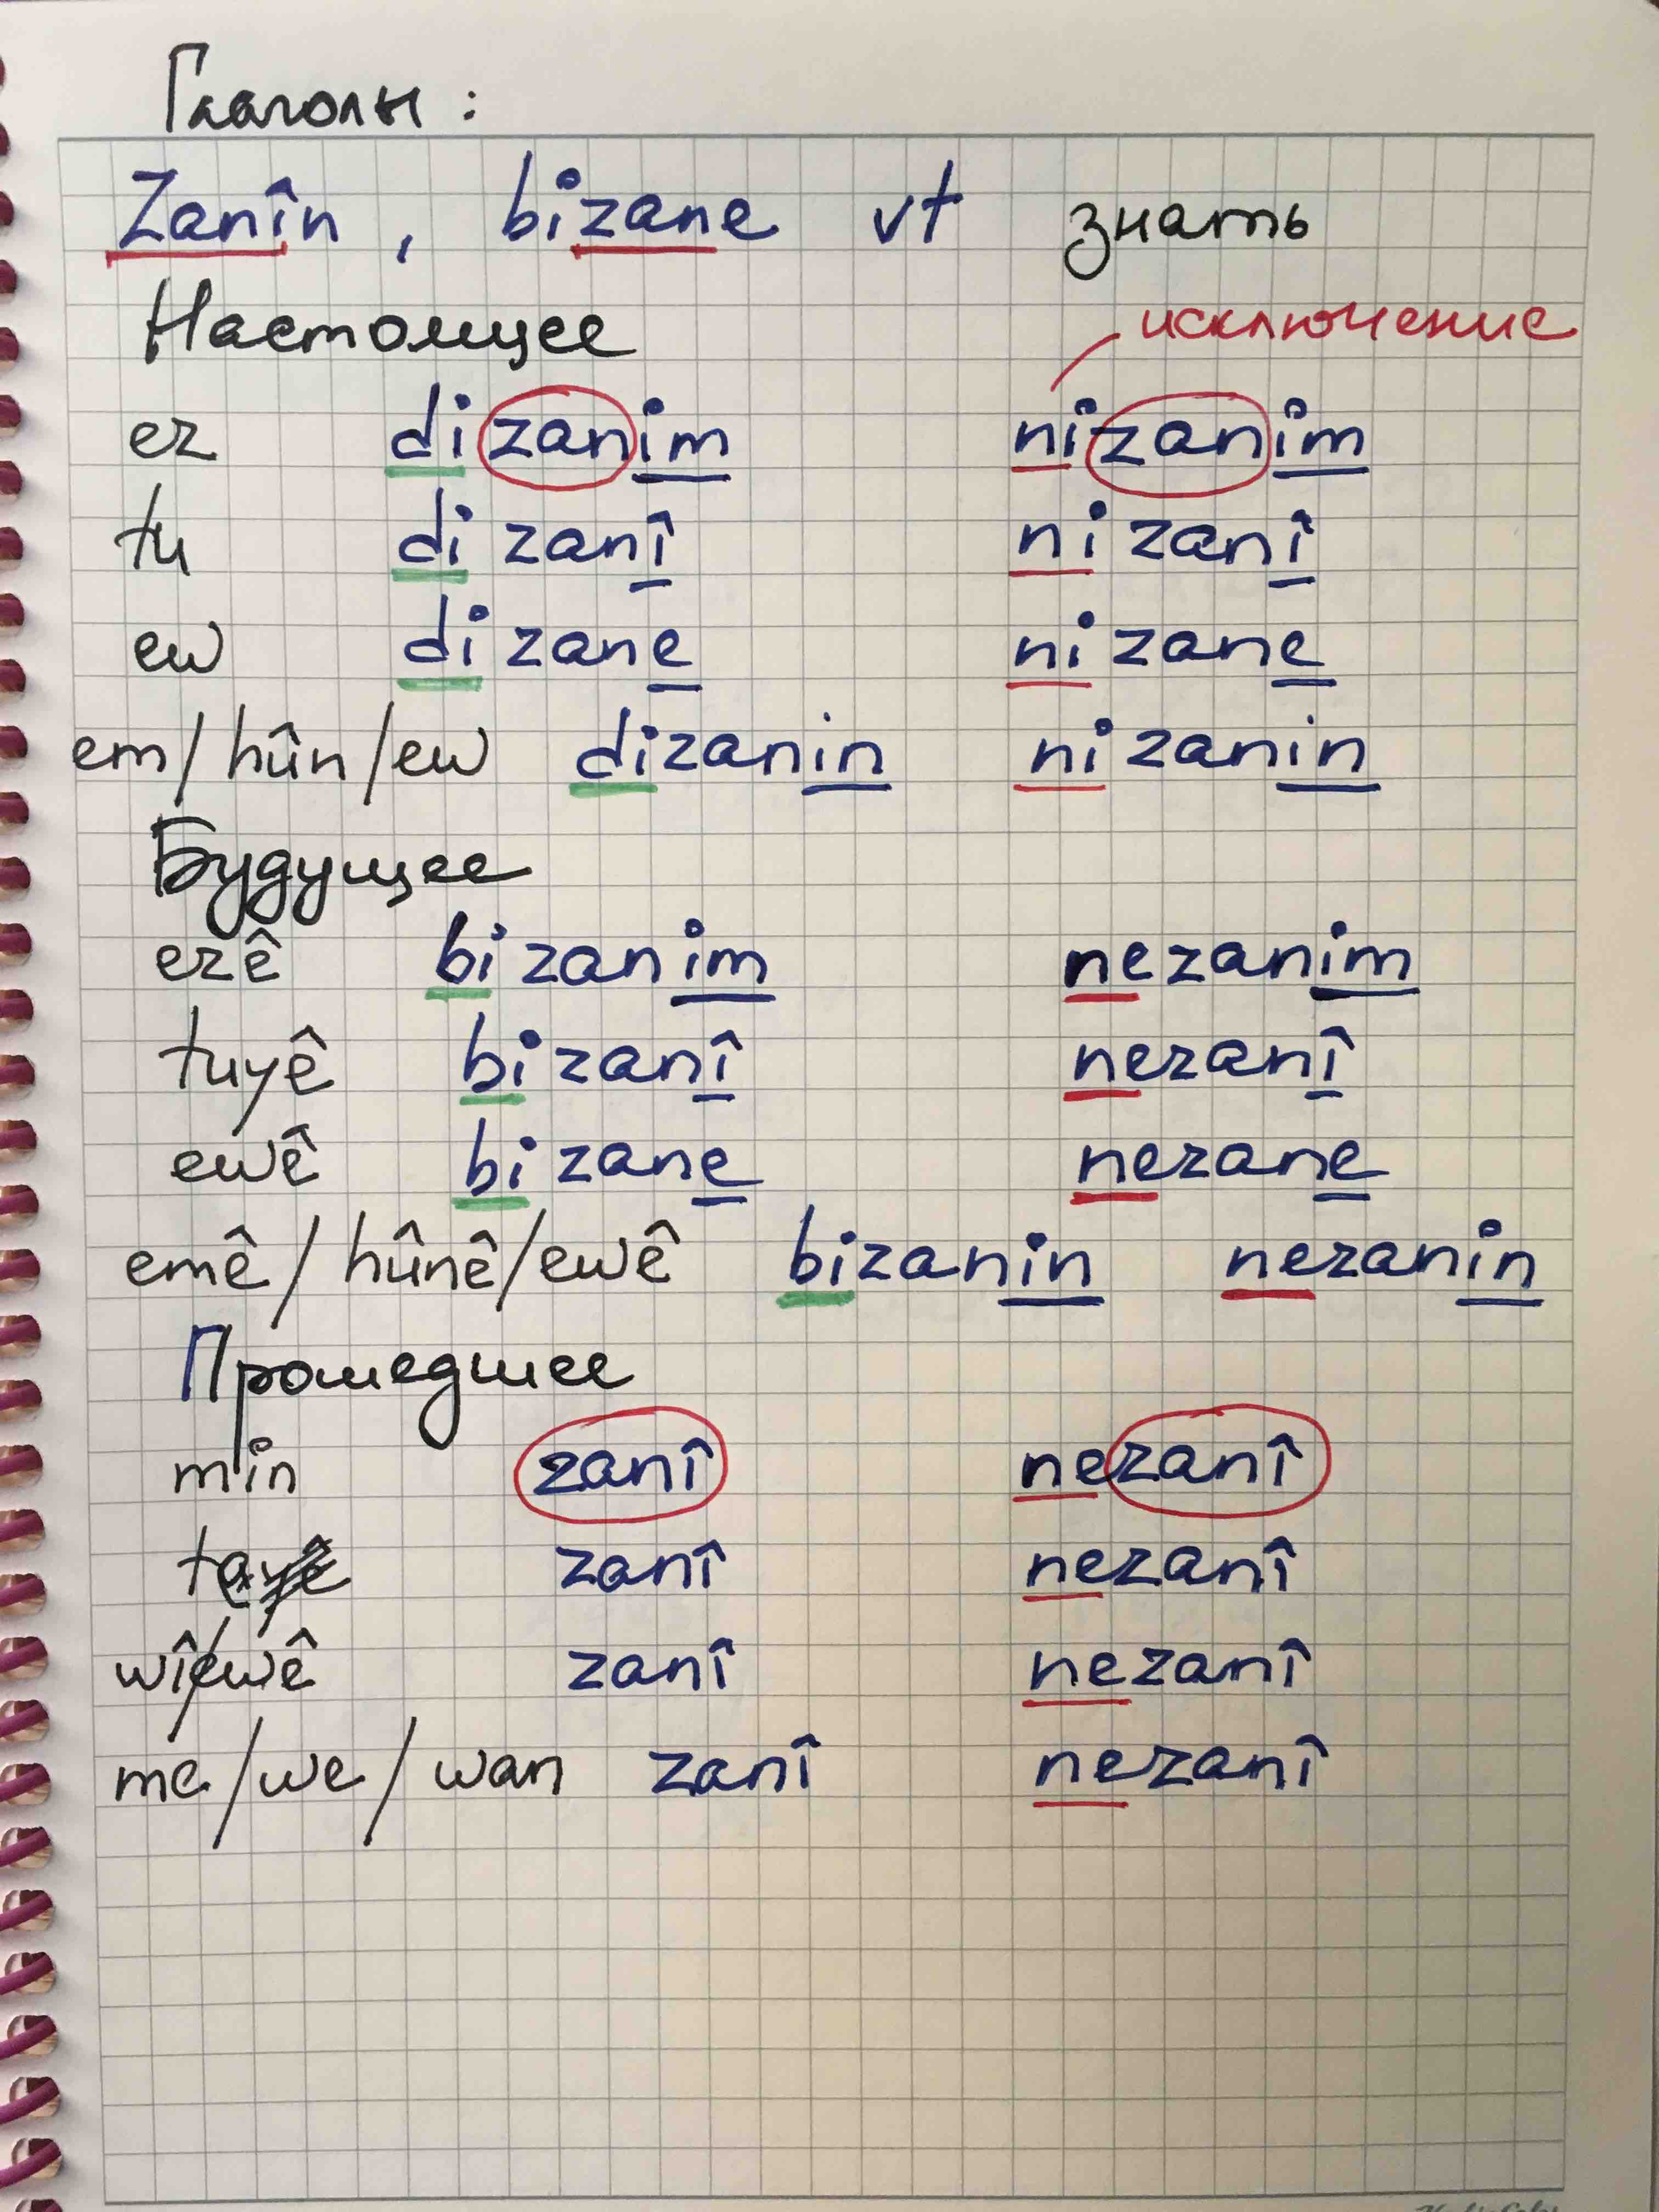 Глаголы:
Zanîn, bizane vt знать
Настоящее исключение
ez dizanim nizanim
tu dizanî nizanî
ew dizane nizane
em/hûn/ew dizanin nizanin
Будущее
ezê bizanim nezanim
tuyê bizanî nezanî
ewê bizane nezane
emê/hûnê/ewê bizanin nezanin
Прошедшее
min zanî nezanî
te zanî nezanî
wî/wê zanî nezanî
me/we/wan zanî nezanî